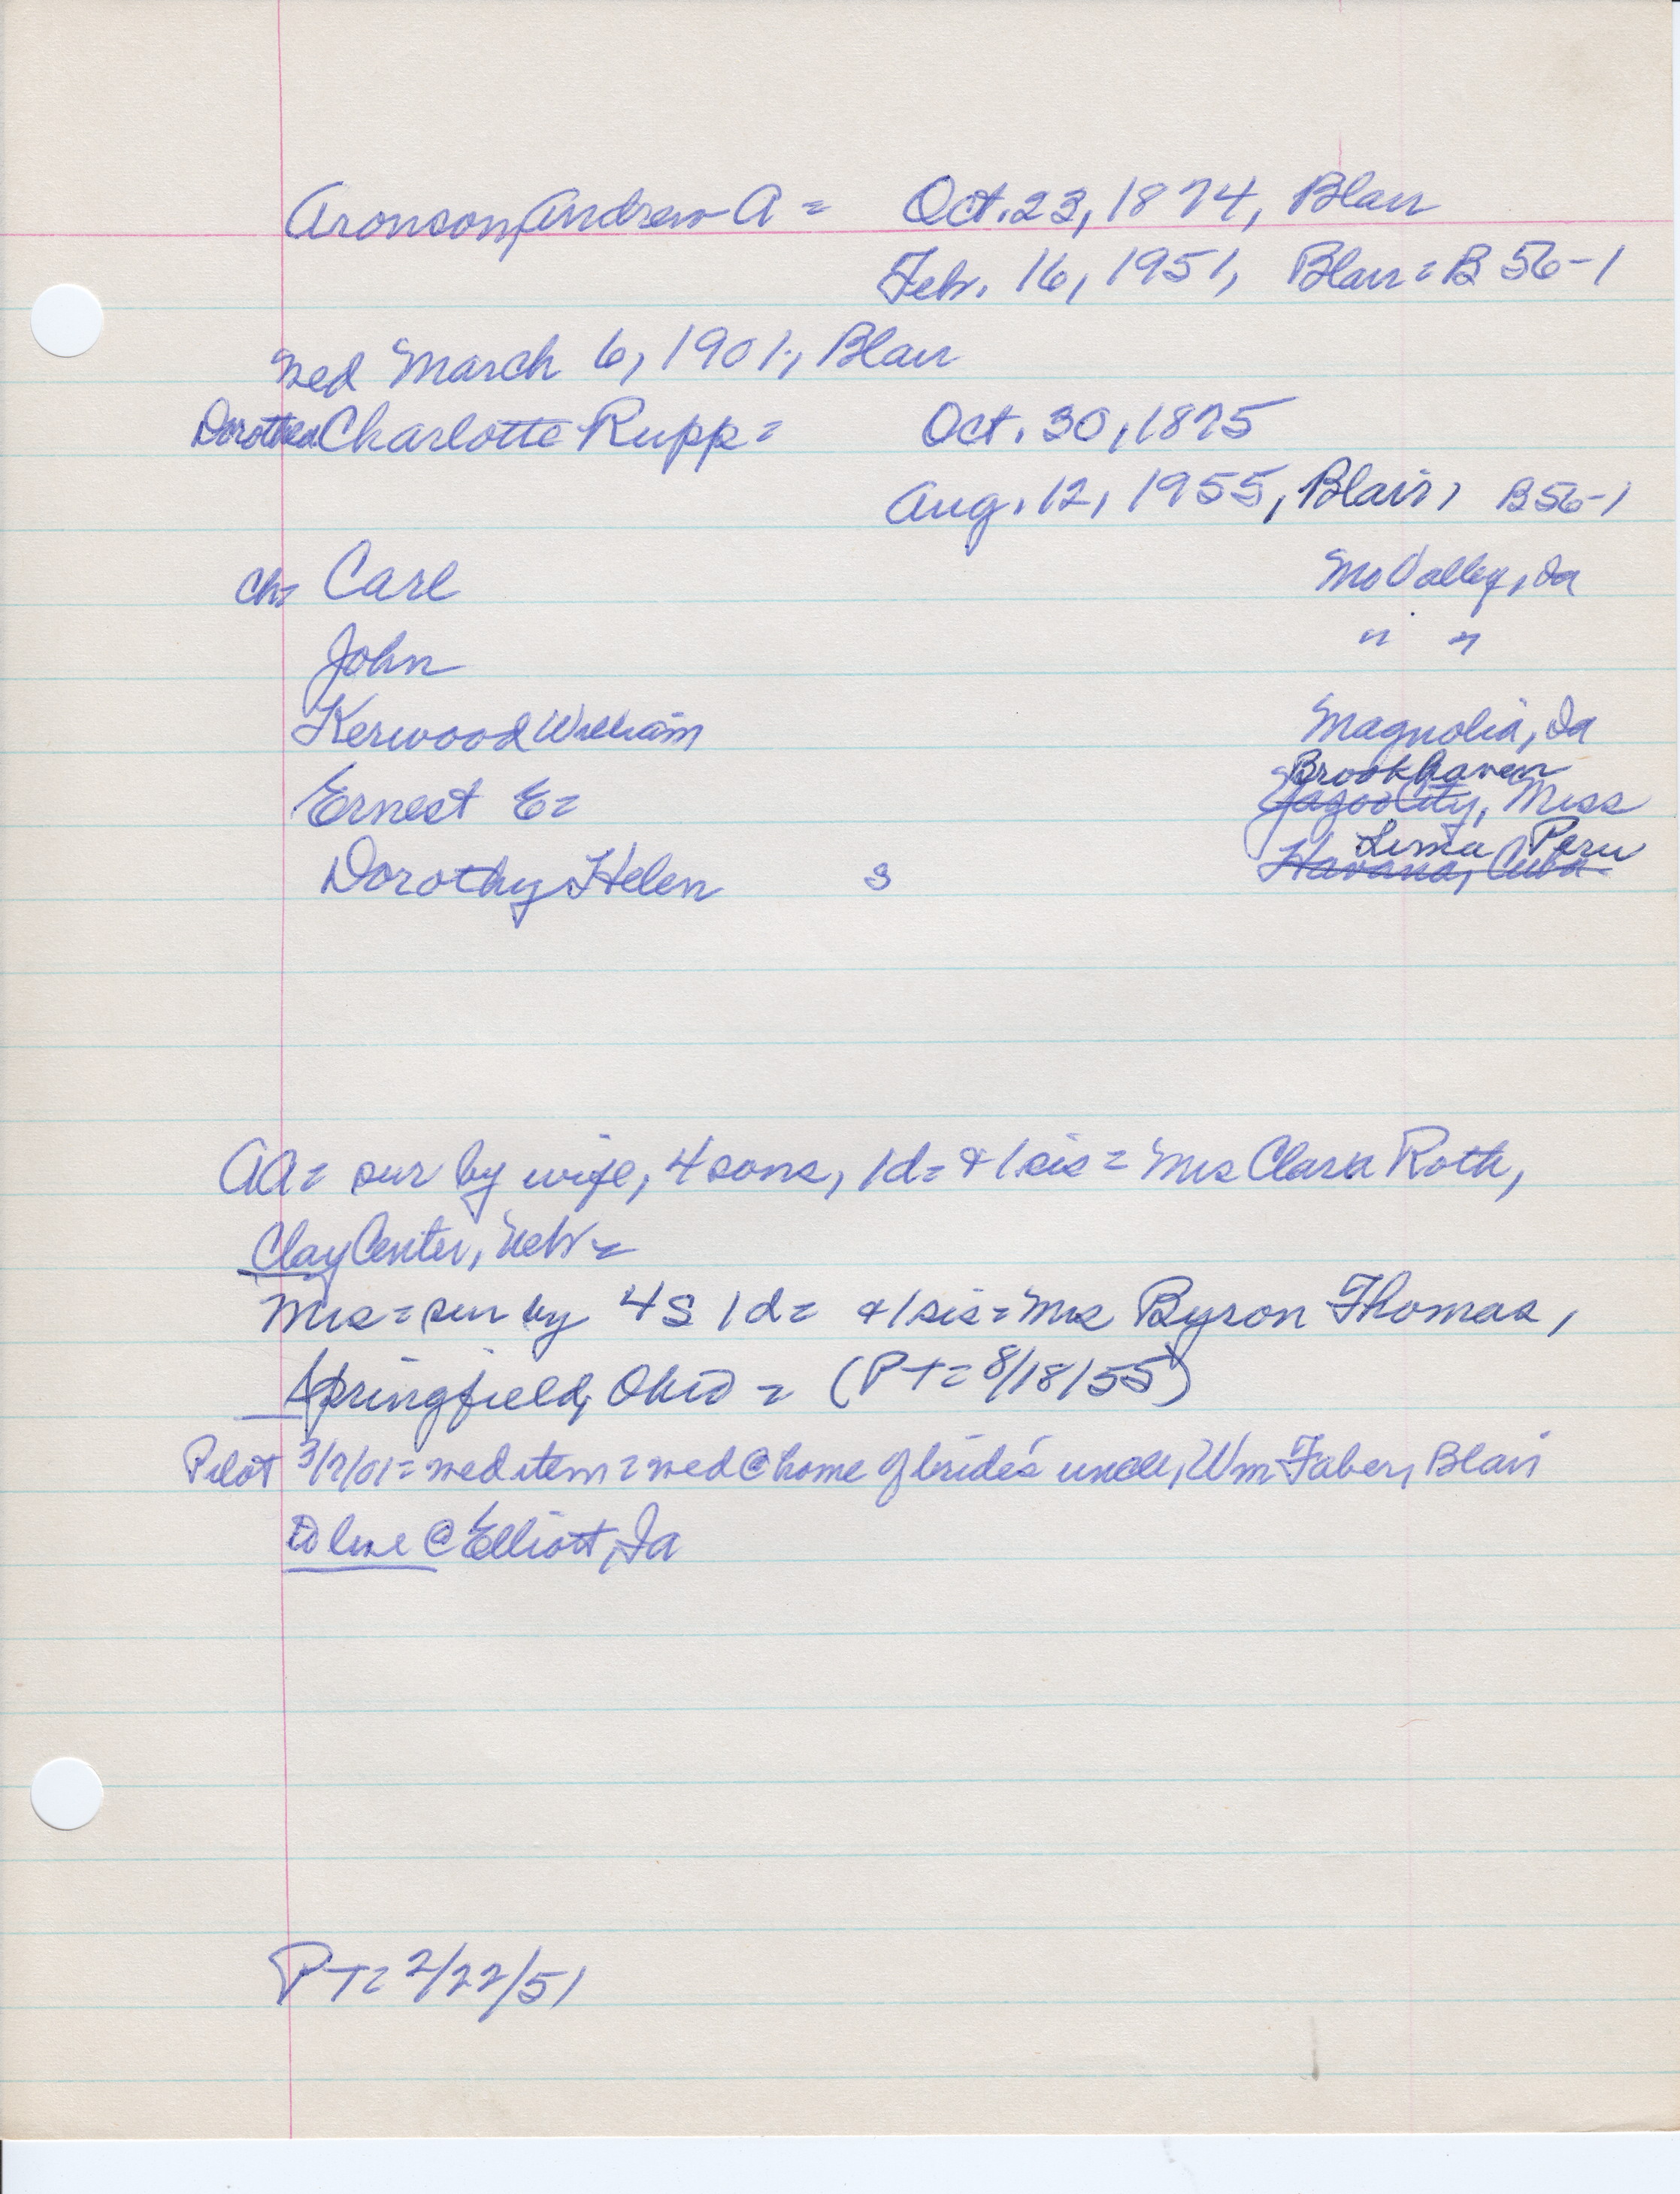 Aronson, Andrew A = Oct. 23, 1874, Blair
Feb. 16, 1951, Blair = B 56-1
wed March 6, 1901, Blair
Dorothea Charlotte Rupp = Oct. 30, 1875
Aug. 12, 1955, Blair, B 56-1
Ch= Carl Mo Valley, Ia
John " "
Kerwood William Magnolia, Ia
Brookhaven
Ernest E= Yazoo City, Miss
Lima Peru
Dorothy Helen s Havana, Cuba
AA= sur by wife, 4 sons, 1d= & 1 sis = Mrs Clara Roth,
Clay Center, Nebr =
Mrs = sur by 4S 1d= & 1 sis = Mrs Byron Thomas,
Springfield, Ohio = (PT= 8/18/55)
Pilot 3/7/01 = wed item = wed @ home of bride's uncle, Wm Faber, Blair
to live @ Elliott, Ia
PT= 2/22/51